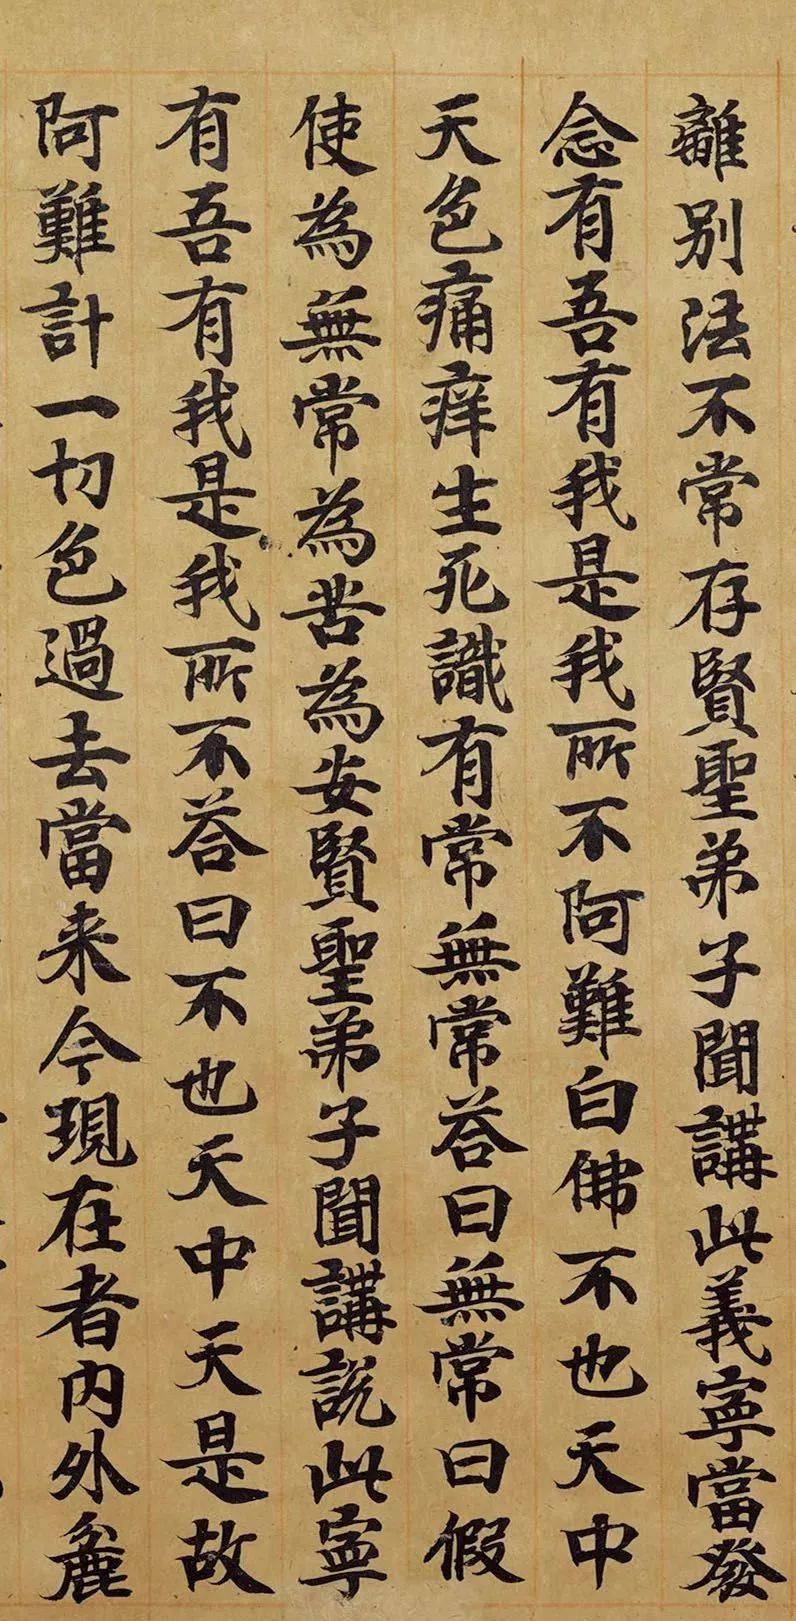 離別法不常存賢聖弟子聞講此義寧當發
念有吾有我是我所不阿難白佛不也天中
天色痛痒生死識有常無常荅曰無常曰假
使為無常為苦為安賢聖弟子聞講説此寧
有吾有我是我所不荅曰不也天中天是故
阿難計一切色過去當来今現在者內外麁